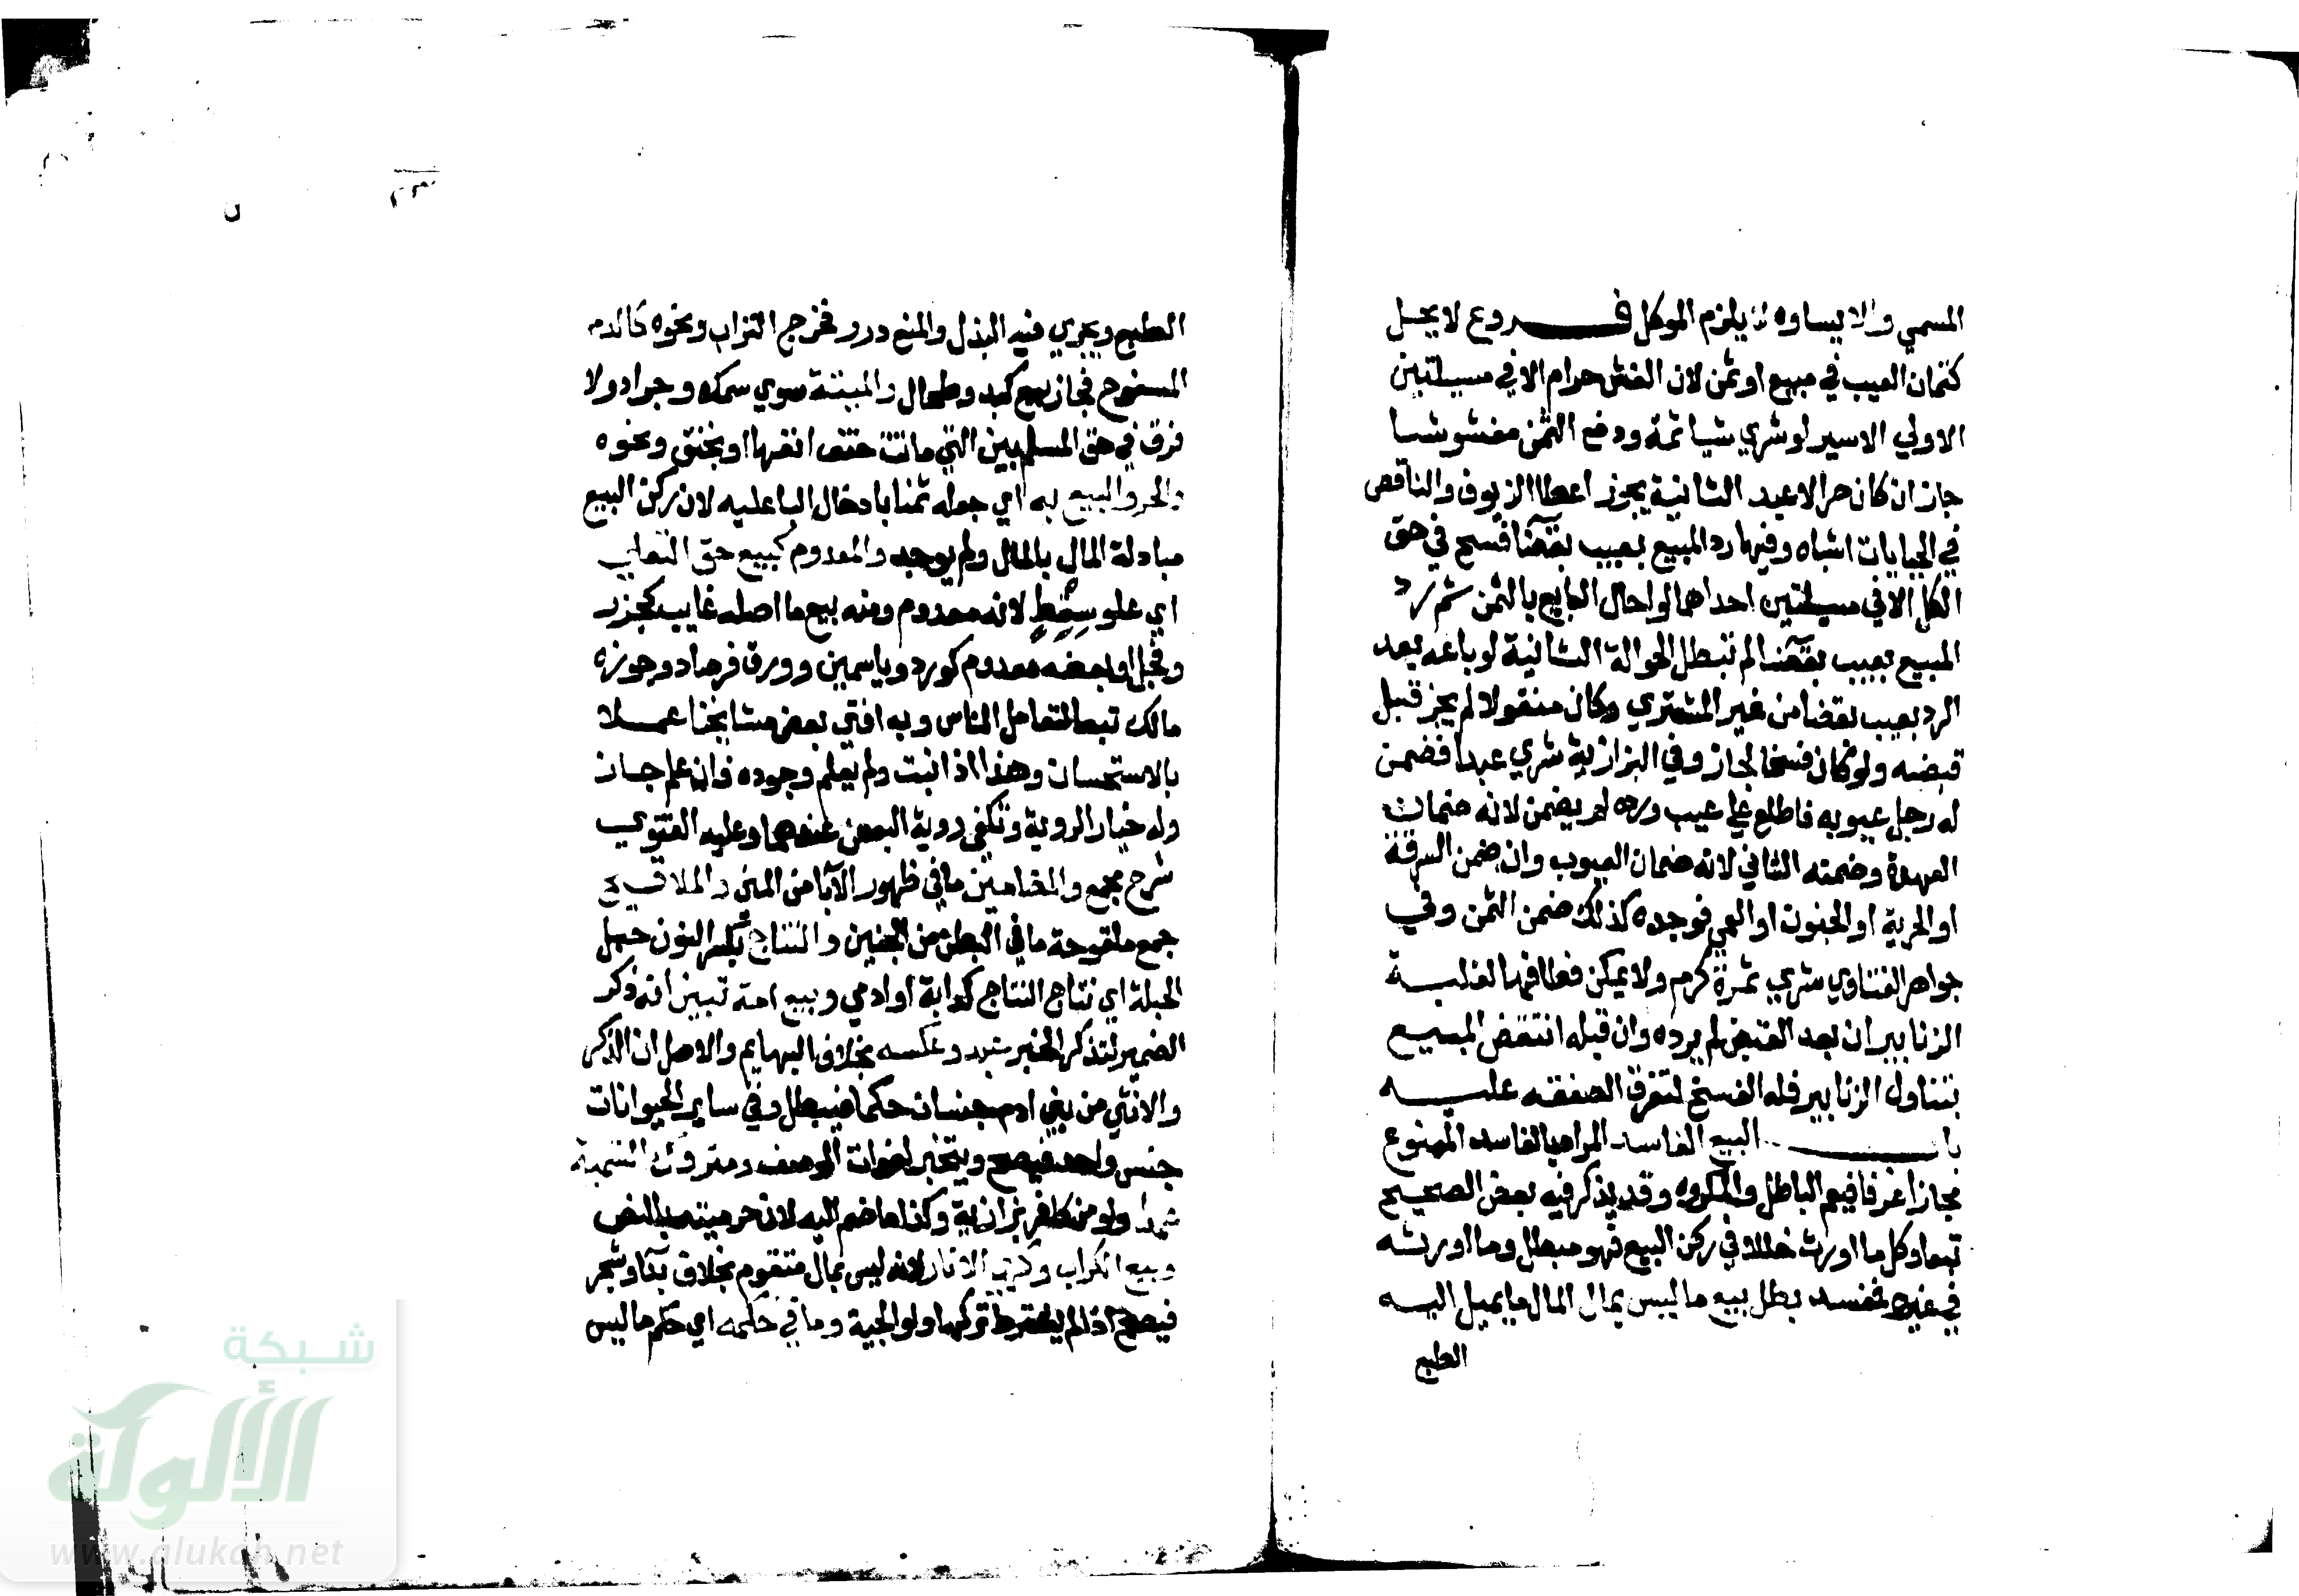 المسمي والا يساوه لم يلزم الموكل فروع لا يحل
كتمان العيب في مبيع او ثمن لان الغش حرام الا في مسيلتين
الاولي الاسير لو شري شيا ثمة ودفع الثمن مغشوشا
جاز ان كان حرا لا عبد الثانية يجوز اعطا الزيوف والناقص
في الجبايات اشباه وفيها رد المبيع بعيب بقضا فسخ في حق
الكل الا في مسيلتين احداهما لو احال البايع بالثمن ثم رد
المبيع بعيب بقضا لم تبطل الحوالة الثانية لو باعه بعد
الرد بعيب بقضا من غير المشتري وكان منقولا لم يجز قبل
قبضه ولو كان فسخا لجاز وفي البزازية شري عبدا فضمن
له رجل عيوبه فاطلع علي عيب ورده لم يضمن لانه ضمان
العهدة وضمنه الثاني لانه ضمان العيوب وان ضمن السرقة
او الحرية او الجنون او العمي فوجده كذلك ضمن الثمن وفي
جواهر الفتاوي شري ثمرة كرم ولا يمكن قطافها لغلبة
الزنابير ان بعد القبض لم يرده وان قبله انتقض المبيع
بتناول الزنابير فله الفسخ لتفرق الصفقه عليه
باب البيع الفاسد المراد بالفاسد الممنوع
مجازا عرفا فيعم الباطل والمكروه وقد يذكر فيه بعض الصحيح
تبعا وكل ما اورث خللا في ركن البيع فهو مبطل وما اورثه
في غيره فمفسد بطل بيع ما ليس بمال المال ما يميل اليه
الطبع
الطبع ويجري فيه البذل والمنع درر فخرج التراب ونحوه كالدم
المسفوح فجاز بيع كبد وطحال والميتة سوي سمك وجراد ولا
فرق في حق المسلم بين التي ماتت حتف انفها او بخنق ونحوه
والحر والبيع به اي جعله ثمنا بادخال البا عليه لان ركن البيع
مبادلة المال بالمال ولم يوجد والمعدوم كبيع حق التعلي
اي علو سقط لانه معدوم ومنه بيع ما اصله غايب كجزر
وفجل او بعضه معدوم كورد وياسمين وورق فرصاد وجوزه
مالك تبعا لتعامل الناس وبه افتي بعض مشايخنا عملا
بالاستحسان وهذا اذا نبت ولم يعلم وجوده فان علم جاز
وله خيار الروية وتكفي روية البعض عندهما وعليه الفتوي
شرح مجمع والمضامين ما في ظهور الآبا من المني والملاقيح
جمع ملقوحة ما في البطن من الجنين والنتاج بكسر النون حبل
الحبلة اي نتاج النتاج كدابة او ادمي وبيع امة تبين انه ذكر
الضمير لتذكر الخبر عبد وعكسه بخلاف البهايم والاصل ان الذكر
والانثي من بني ادم جنسان حكما فيبطل وفي ساير الحيوانات
جنس واحد فيصح ويتخير لفوات الوصف ومتروك التسمية
عمدا ولو من كافر بزازية وكذا ما ضم اليه لان حرمته بالنص
وبيع الكراب وكري الانهار لانه ليس بمال متقوم بخلاف بنا وشجر
فيصح اذا لم يشترط تركها ولوالجية وما في حكمه اي حكم ما ليس
شبكة
الألوكة
www.alukah.net